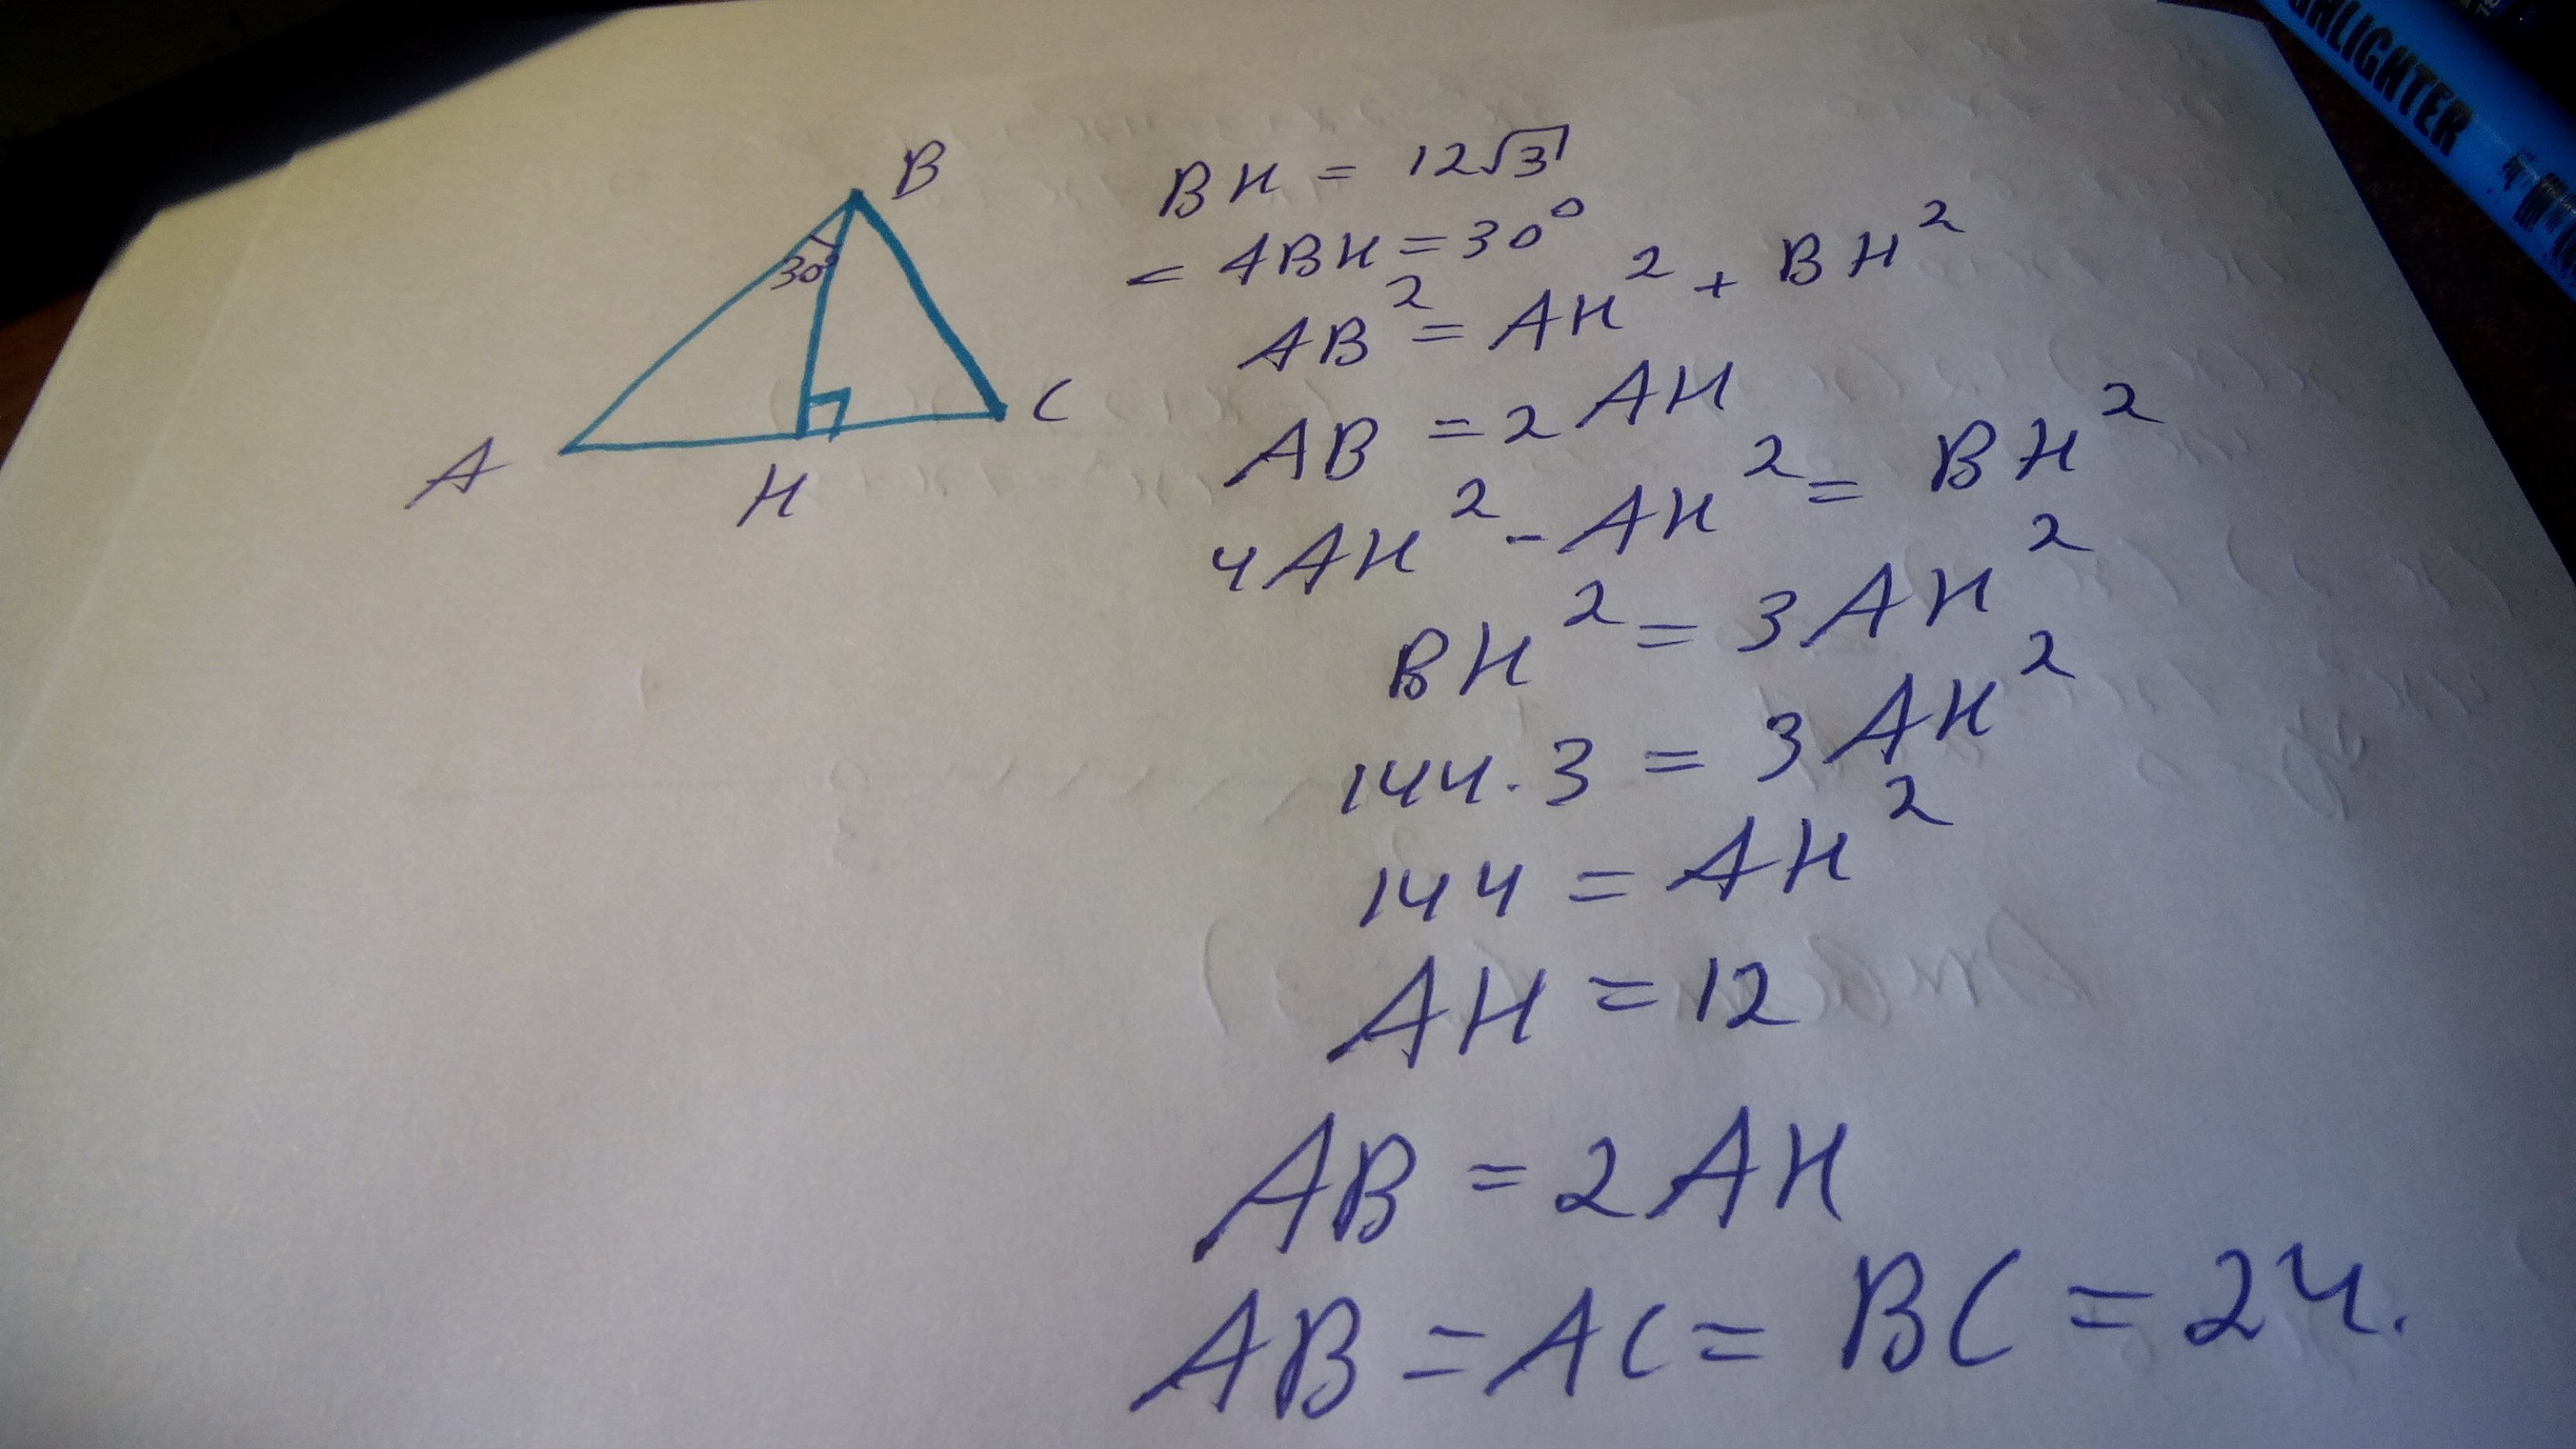 B
30°
A
H
C
BH = 12√3
< ABH = 30°
AB² = AH² + BH²
AB = 2AH
4AH² - AH² = BH²
BH² = 3AH²
144 · 3 = 3AH²
144 = AH²
AH = 12
AB = 2AH
AB = AC = BC = 24.